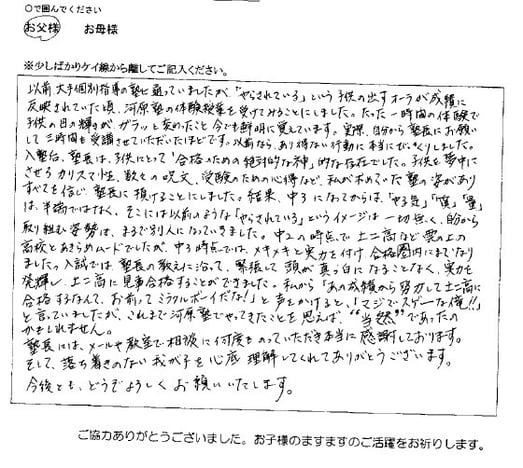 ○で囲んでください
お父様 お母様
※少しばかりケイ線から離してご記入ください。
以前大手個別指導の塾に通っていましたが、「やらされている」という子供の出すオーラが成績に
反映されていた頃、河原塾の体験授業を受けてみることにしました。たった一時間の体験で
子供の目の輝きがガラッと変わったこと今でも鮮明に覚えています。実際、自分から塾長にお願い
して三時間も受講させていただいたほどです。以前なら、あり得ない行動に本当にびっくりしました。
入塾后、塾長は、子供にとって「合格のための絶対的な神」的な存在でした。子供を夢中に
させるカリスマ性、数々の呪文、受験のための心得など、私が求めていた塾の姿があり
すべてを信じ、塾長に預けることにしました。結果、中3になってからは、「やる気」「質」「量」
は、半端ではなく、そこには以前のような「やらされている」というイメージは一切無く、自分から
取り組む姿勢は、まるで別人になっていきました。中2の時点で土二高など雲の上の
高校とあきらめムードでしたが、中3時点では、メキメキと実力を付け、合格圏内にまでなり
ました。入試では、塾長の教えに沿って、緊張して頭が真っ白になることなく、実力を
発揮し、土二高に見事合格することができました。私から「あの成績から努力して土二高に
合格するなんて、お前ってミラクルボーイだな!」と声をかけると、「マジでスゲーな俺!!」
と言っていましたが、これまで河原塾でやってきたことを思えば、"当然"であったの
かもしれません。
塾長には、メールや教室で相談に何度ものっていただき本当に感謝しております。
そして、落ち着きのない我が子を心底理解してくれてありがとうございます。
今後とも、どうぞよろしくお願いいたします。
ご協力ありがとうございました。お子様のますますのご活躍をお祈りします。